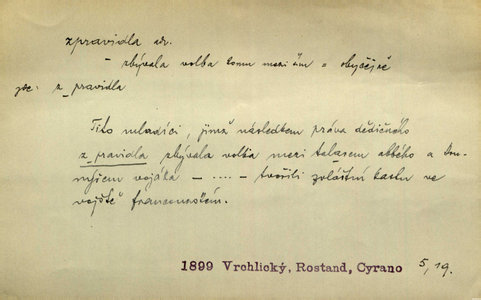 zpravidla adv.
– zbývala volba komu mezi čím = obyčejně
psc: z_pravidla
Tito mladíci, jimž následkem práva dědičného
z_pravidla zbývala volba mezi talarem abbého a kon-
mířem vojáka – .... – tvořili zvláštní kastu ve
vojště francouzském.
1899 Vrchlický, Rostand, Cyrano 5, 19.